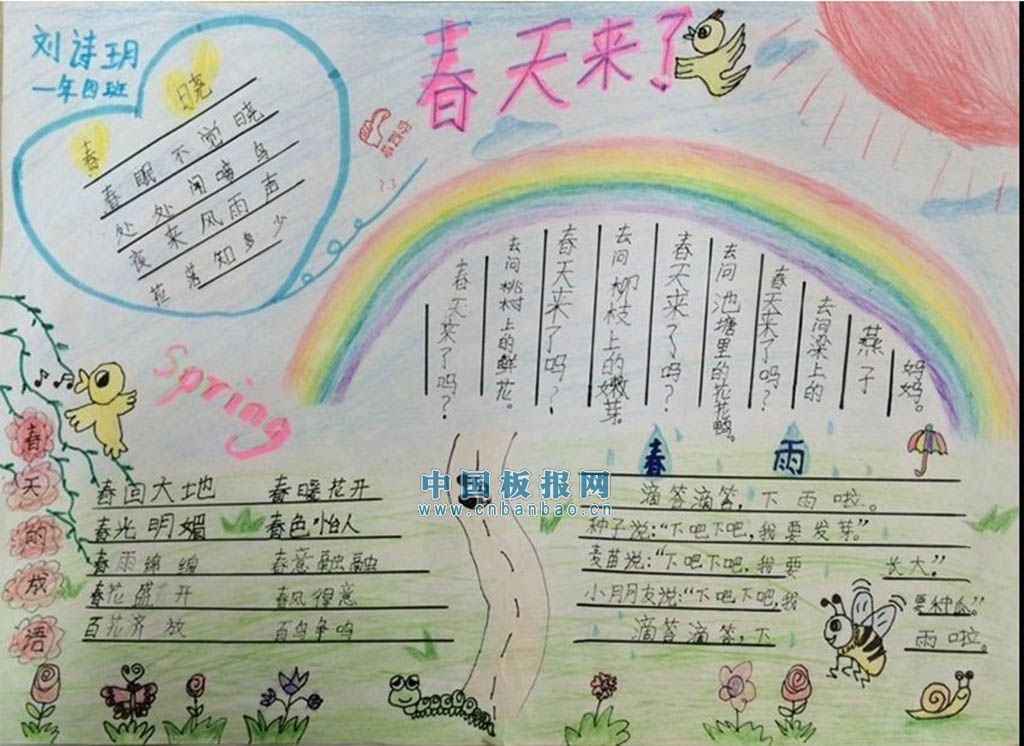 刘诗玥
一年四班
春天来了
春晓
春眠不觉晓
处处闻啼鸟
夜来风雨声
花落知多少
妈妈。
燕子
去问梁上的
春天来了吗？
去问池塘里的花花鸭。
春天来了吗？
去问柳枝上的嫩芽。
春天来了吗？
去问桃树上的鲜花。
春天来了吗？
春天来了吗？
Spring
春天的成语
春回大地 春暖花开
春光明媚 春色怡人
春雨绵绵 春意融融
春花盛开 春风得意
百花齐放 百鸟争鸣
中国板报网
www.cnbanbao.cn
春雨
滴答滴答，下雨啦。
种子说：“下吧下吧，我要发芽。”
麦苗说：“下吧下吧，我要长大。”
小朋友说：“下吧下吧，我要种瓜。”
滴答滴答，下雨啦。